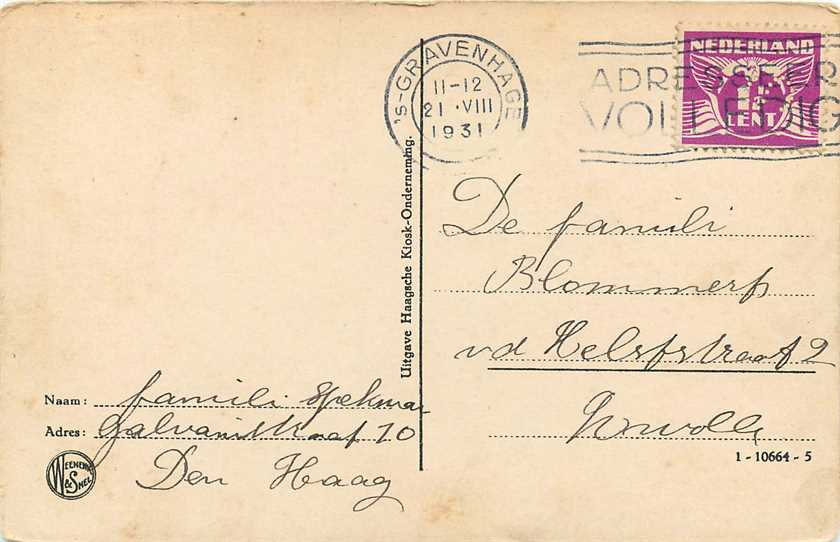 's-GRAVENHAGE
11-12
21 VIII
1931
ADRESSEER
VOLLEDIG
NEDERLAND
1½
CENT
Uitgave Haagsche Kiosk-Onderneming.
De famili
Blommers
vd Helsfstraat 2
Zwolle
Naam: famili Spekman
Adres: Galvanistraat 10
Den Haag
WEENENK & SNEL
1 - 10664 - 5